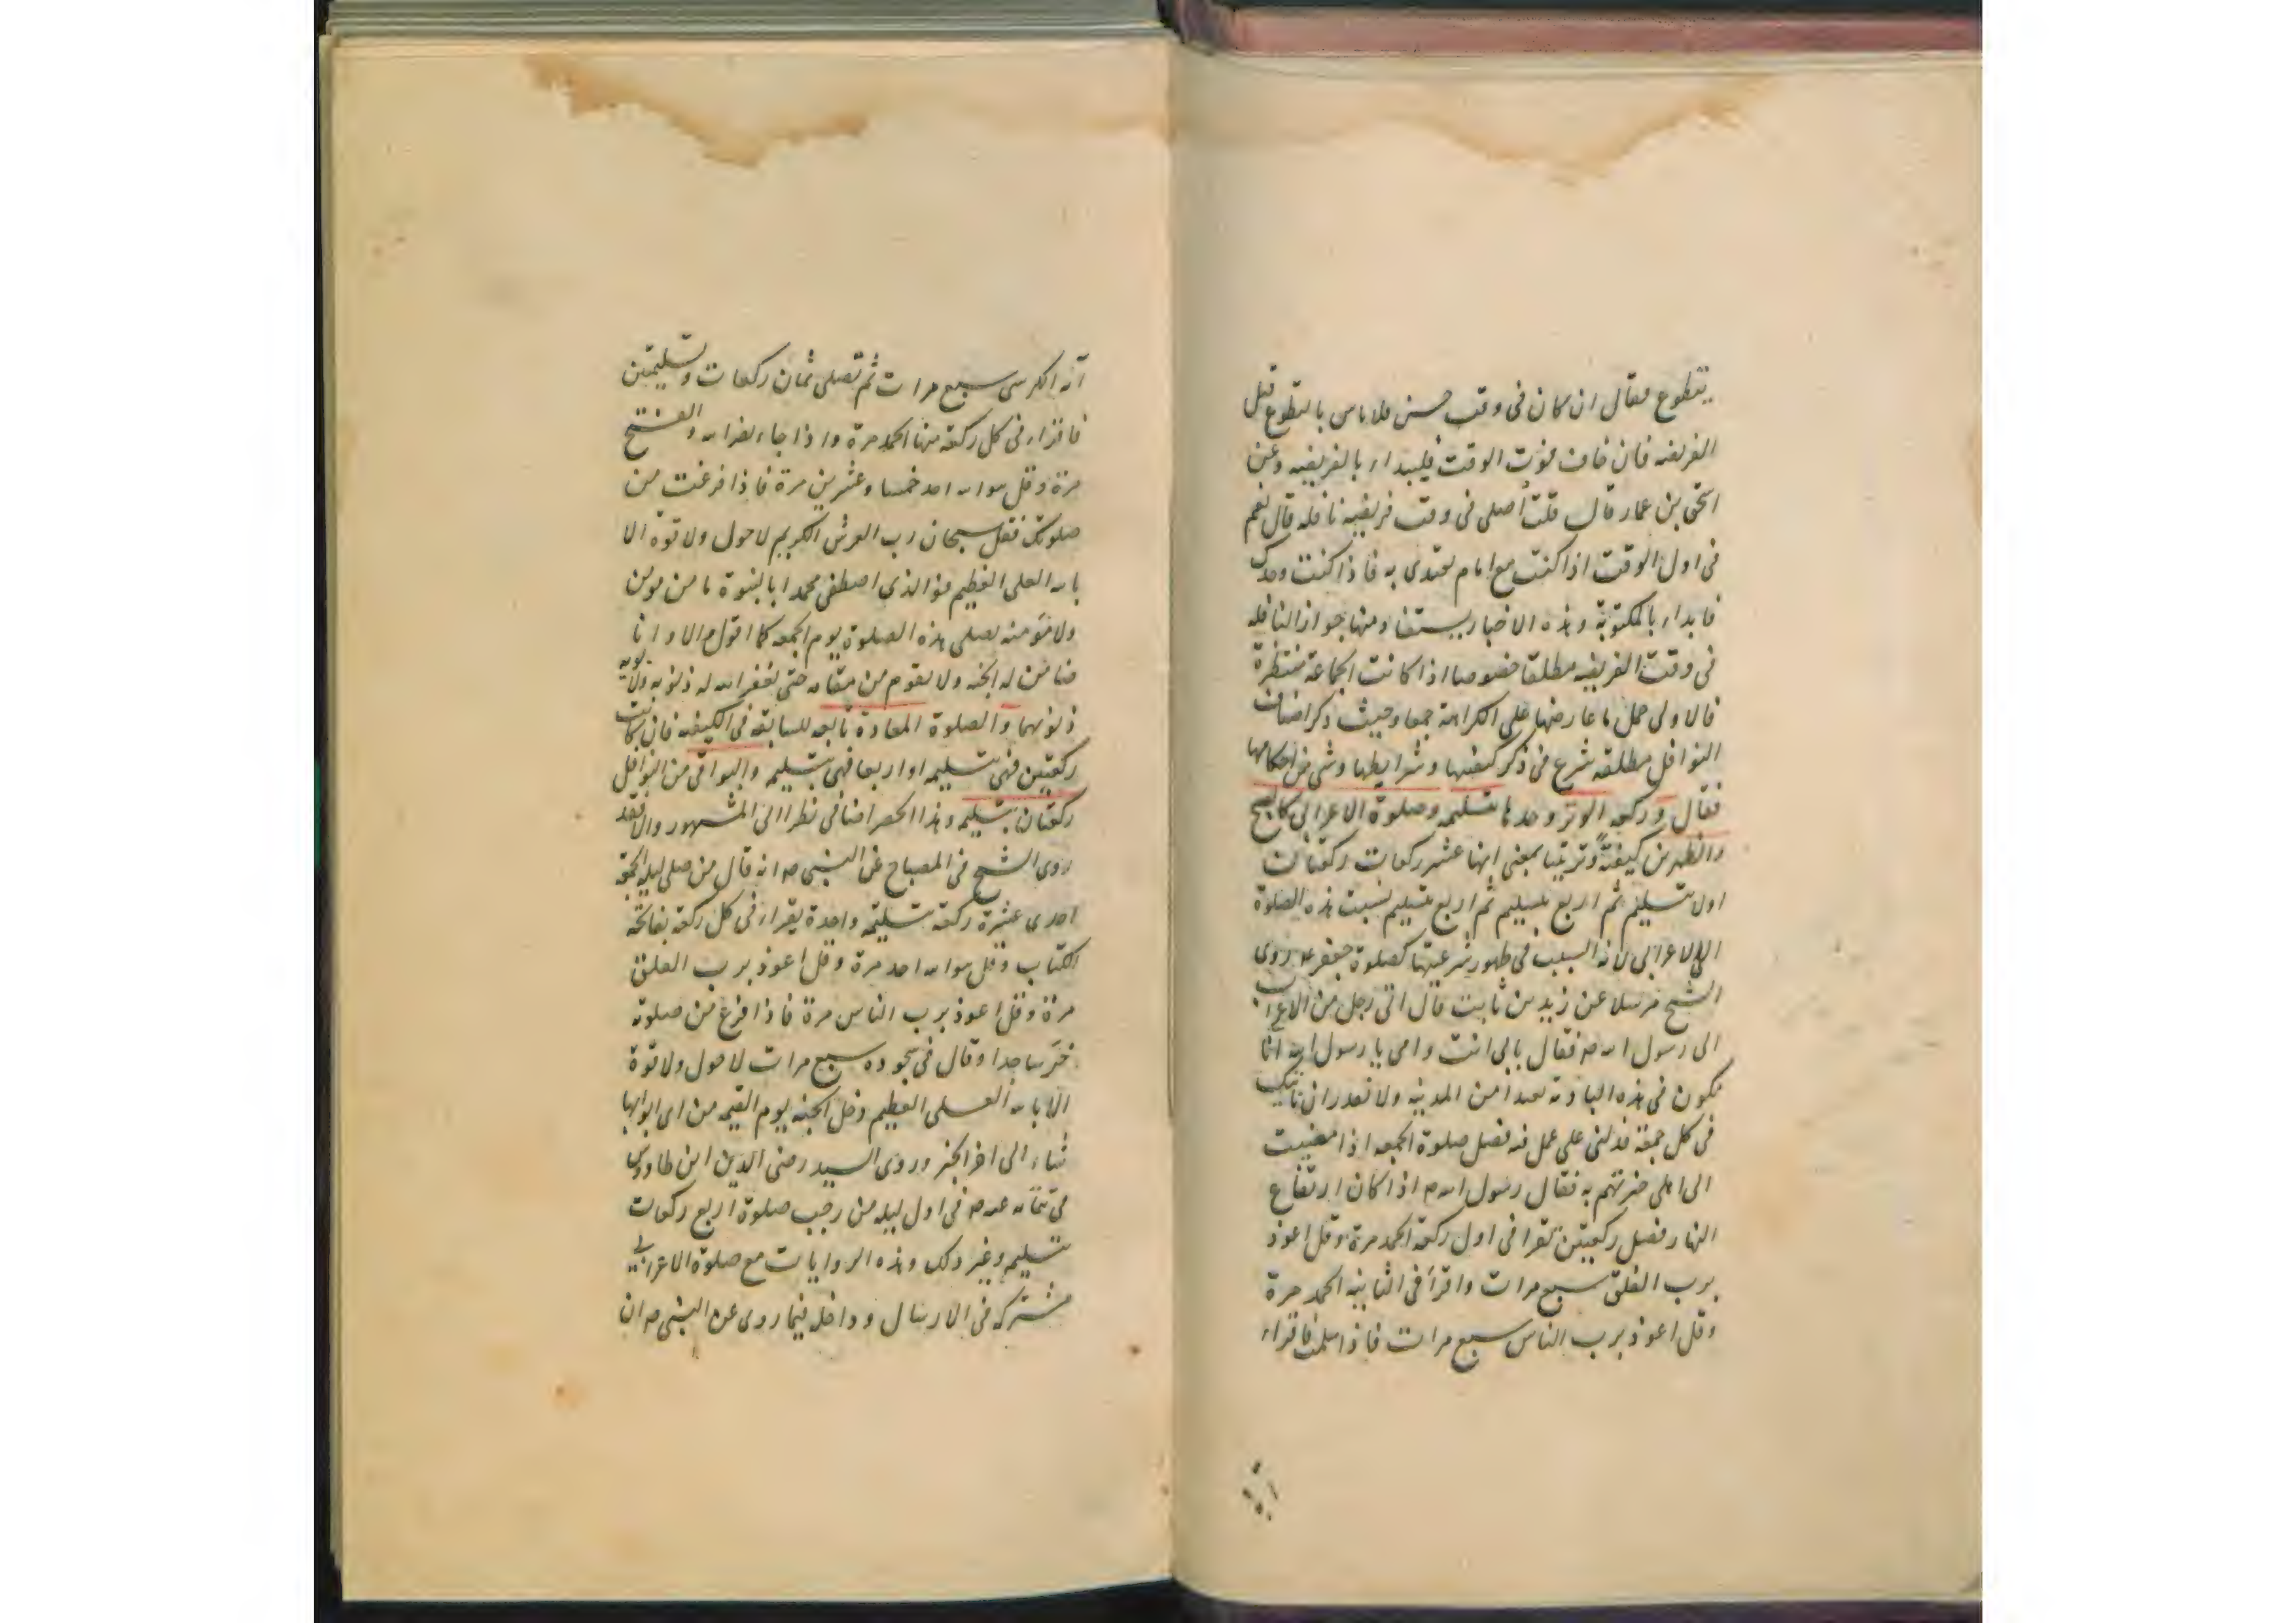 يتطوع فقال ان كان فى وقت حسن فلا باس بالتطوع قبل
الفريضه فان خاف فوت الوقت فليبداء بالفريضه وعن
اسحق بن عمار قال قلت اصلى فى وقت فريضه نافله قال نعم
فى اول الوقت اذا كنت مع امام تقتدى به فاذا كنت وحدك
فابداء بالمكتوبة وهذه الاخبار يستفاد منها جواز النافله
فى وقت الفريضه مطلقا خصوصا اذا كانت الجماعة منتظرة
فالاولى حمل ما عارضها على الكراهة جمعا وحيث ذكر اصناف
النوافل مطلقه شرع فى ذكر كيفيتها وشرايطها وشى من احكامها
فقال وركعه الوتر وحدها بتسليمه وصلوة الاعرابى كالصبح
والظهرين كيفيّةً وترتيبا بمعنى انها عشر ركعات ركعتان
اولا بتسليم ثم اربع بتسليم ثم اربع بتسليم نسبت هذه الصلوة
الى الاعرابى لانه السبب فى ظهور شرعيتها كصلوة جعفر ع روى
الشيخ مرسلا عن زيد بن ثابت قال اتى رجل من الاعراب
الى رسول الله ص فقال بابى انت وامى يا رسول الله انا
نكون فى هذه البادية بعيدا من المدينه ولا نقدر ان ناتيك
فى كل جمعة فدلنى على عمل فيه فضل صلوة الجمعه اذا مضيت
الى اهلى خبرتهم به فقال رسول الله ص اذا كان ارتفاع
النهار فصل ركعتين تقرا فى اول ركعة الحمد مرة وقل اعوذ
برب الفلق سبع مرات واقرأ فى الثانيه الحمد مرة
وقل اعوذ برب الناس سبع مرات فاذا سلمت فاقراء
آية الكرسى سبع مرات ثم تصلى ثمان ركعات وتسليمتين
فاقراء فى كل ركعة منها الحمد مرة واذا جاء نصر الله والفتح
مرة وقل هو الله احد خمسا وعشرين مرة فاذا فرغت من
صلوتك فقل سبحان رب العرش الكريم لا حول ولا قوة الا
بالله العلى العظيم فو الذى اصطفى محمدا بالنبوة ما من مومن
ولا مؤمنه يصلى هذه الصلوة يوم الجمعه كما اقول الا وانا
ضامن له الجنه ولا يقوم من مقامه حتى يغفر الله له ذنوبه ولابويه
ذنوبهما والصلوة المعادة تابعه للسابقه فى الكيفيه فان كانت
ركعتين فهى بتسليمه او اربعا فهى بتسليمه والبواقى من النوافل
ركعتان بتسليمه وهذا الحصر اضافى نظرا الى المشهور والا فقد
روى الشيخ فى المصباح عن النبى ص انه قال من صلى ليلة الجمعة
احدى عشرة ركعة بتسليمة واحدة يقراء فى كل ركعة بفاتحة
الكتاب وقل هو الله احد مرة وقل اعوذ برب الفلق
مرة وقل اعوذ برب الناس مرة فاذا فرغ من صلوته
خرّ ساجدا وقال فى سجوده سبع مرات لا حول ولا قوة
الا بالله العلى العظيم دخل الجنه يوم القيمه من اى ابوابها
شاء الى اخر الخبر وروى السيد رضى الدين ابن طاوس
فى عنه ص فى اول ليله من رجب صلوة اربع ركعات
بتسليمه وغير ذلك وهذه الروايات مع صلوة الاعرابى
مشتركه فى الارسال وداخله فيما روى عن النبى ص ان